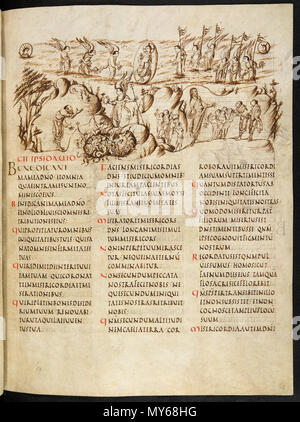 CII IPSI DAVID
BENEDIC ANI
MA MEA DNO ET OMNIA
QUAE INTRA ME SUNT NOMEN
BENEDIC ANIMA MEA DNO
ET NOLI OBLIVISCI OMNES RE
TRIBUTIONES EIUS
QUI PROPITIATUR OMNIBUS
INIQUITATIBUS TUIS QUI SA
NAT OMNES INFIRMITATES
TUAS
QUI REDIMIT DE INTERITU UI
TAM TUAM QUI CORONAT
TE IN MISERICORDIA ET MISE
RATIONIBUS
QUI REPLET IN BONIS DESIDE
RIUM TUUM RENOUABI
TUR UT AQUILAE IUUEN
TUS TUA
FACIENS MISERICORDIAS
DNS ET IUDICIUM OMNIB
INIURIAM PATIENTIBUS
SUAS
MISERATOR ET MISERICORS
DNS LONGANIMIS ET MUL
TUM MISERICORS
NON IN PERPETUUM IRASCE
TUR NEQUE IN AETERNUM
COMMINABITUR
NON SECUNDUM PECCATA
NOSTRA FECIT NOBIS NE
QUE SECUNDUM INIQUI
TATES NOSTRAS RETRIBU
IT NOBIS
QNM SECUNDUM ALTITU
DINEM CAELI A TERRA COR
ROBORAUIT MISERICORDI
AM SUAM SUPER TIMENTES SE
QUANTUM DISTAT ORTUS AB
OCCIDENTE LONGE FECIT A
NOBIS INIQUITATES
QUOMODO MISERETUR PATER
FILIORUM MISERTUS EST DNS
TIMENTIBUS SE IPSE
COGNOUIT FIGMENTUM
NOSTRUM
RECORDATUS EST QNM PULUIS
SUMUS HOMO SICUT
FAENUM DIES EIUS TAMQUA
FLOS AGRI SIC EFFLOREBIT
QNM SPS PERTRANSIBIT IN ILLO
ET NON SUBSISTET ET NON
COGNOSCET AMPLIUS LOCUM
SUUM
MISERICORDIA AUTEM DNI
alamy
Image ID: MY68HG
www.alamy.com